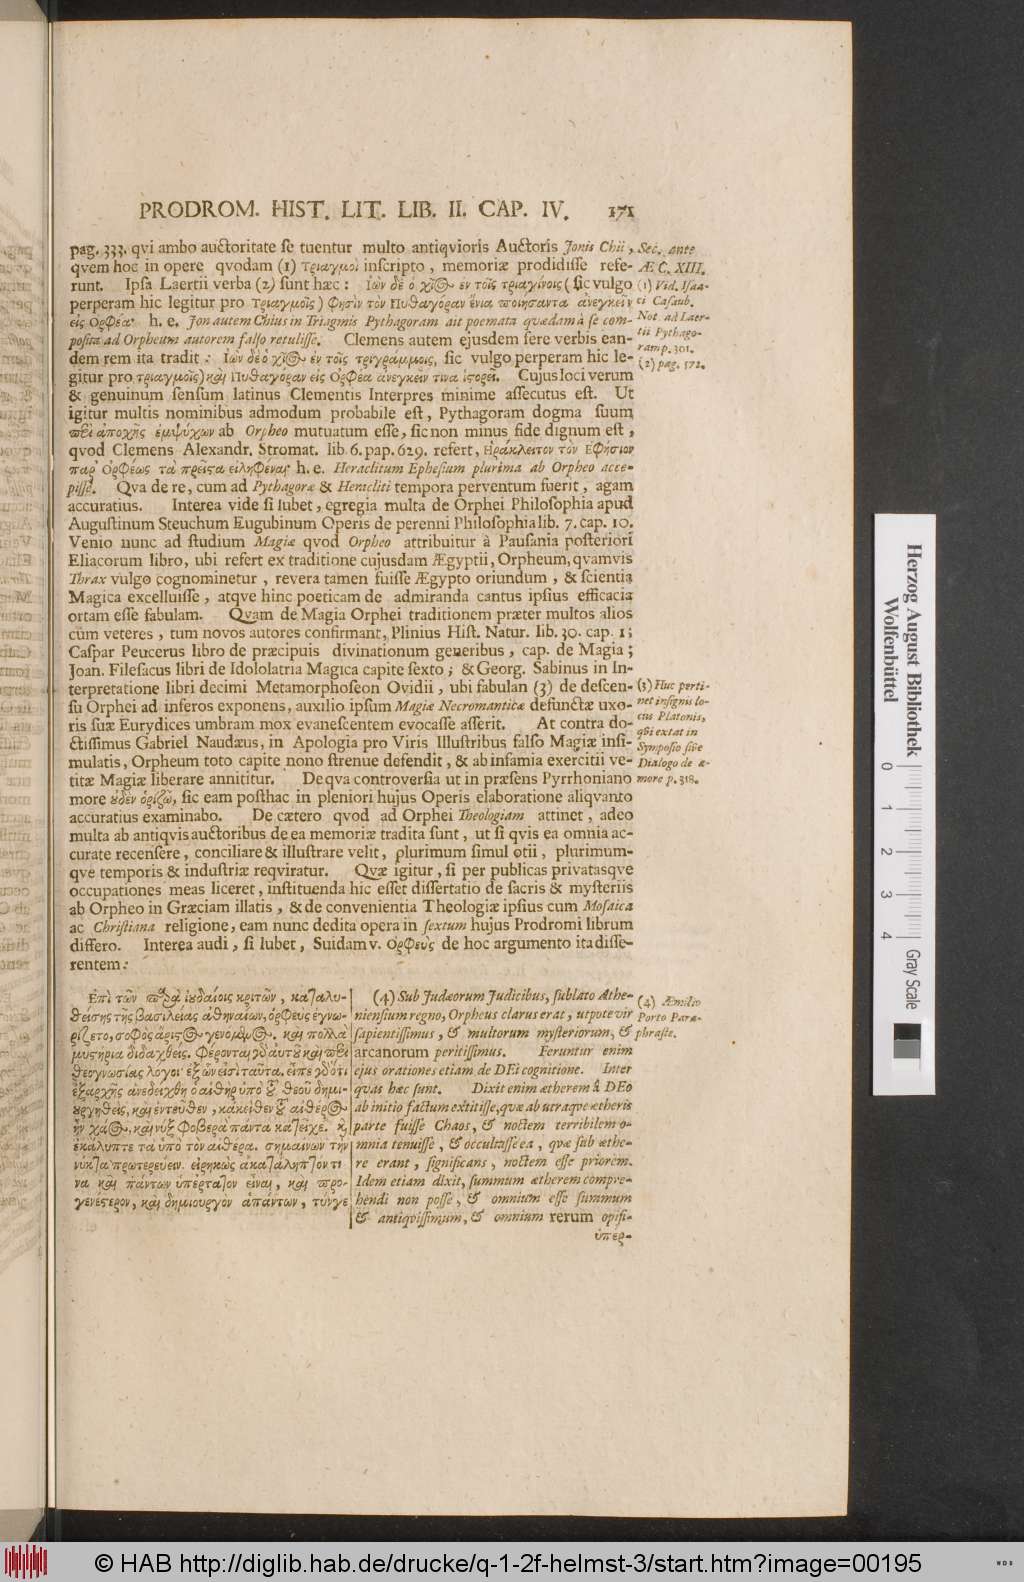 PRODROM. HIST. LIT. LIB. II. CAP. IV. 171
pag. 333. qvi ambo auctoritate se tuentur multo antiqvioris Auctoris Jonis Chii,
qvem hoc in opere qvodam (1) τριαγμοὶ inscripto, memoriæ prodidisse refe-
runt. Ipsa Laertii verba (2) sunt hæc: Ἰὼν δὲ ὁ χῖος ἐν τοῖς τριαγίνοις (sic vulgo
perperam hic legitur pro τριαγμοῖς) φησὶν τὸν Πυθαγόραν ἔνια ποιήσαντα ἀνεγκεῖν
εἰς Ὀρφέα· h. e. Jon autem Chius in Triagmis Pythagoram ait poemata quædam à se com-
posita ad Orpheum autorem falso retulisse. Clemens autem ejusdem fere verbis ean-
dem rem ita tradit: Ἰὼν δὲ ὁ χῖος ἐν τοῖς τριγράμμοις, sic vulgo perperam hic le-
gitur pro τριαγμοῖς) καὶ Πυθαγόραν εἰς Ὀρφέα ἀνεγκεῖν τινα ἱστορεῖ. Cujus loci verum
& genuinum sensum latinus Clementis Interpres minime assecutus est. Ut
igitur multis nominibus admodum probabile est, Pythagoram dogma suum
περὶ ἀποχῆς ἐμψύχων ab Orpheo mutuatum esse, sic non minus fide dignum est,
qvod Clemens Alexandr. Stromat. lib. 6. pap. 629. refert, Ἡράκλειτον τὸν Ἐφήσιον
παρ' Ὀρφέως τὰ πρεῖστα εἰληφέναι· h. e. Heraclitum Ephesium plurima ab Orpheo acce-
pisse. Qva de re, cum ad Pythagoræ & Heracliti tempora perventum fuerit, agam
accuratius. Interea vide si lubet, egregia multa de Orphei Philosophia apud
Augustinum Steuchum Eugubinum Operis de perenni Philosophia lib. 7. cap. 10.
Venio nunc ad studium Magiæ qvod Orpheo attribuitur à Pausania posteriori
Eliacorum libro, ubi refert ex traditione cujusdam Ægyptii, Orpheum, qvamvis
Thrax vulgo cognominetur, revera tamen fuisse Ægypto oriundum, & scientia
Magica excelluisse, atqve hinc poeticam de admiranda cantus ipsius efficacia
ortam esse fabulam. Qvam de Magia Orphei traditionem præter multos alios
cùm veteres, tum novos autores confirmant, Plinius Hist. Natur. lib. 30. cap. 1;
Caspar Peucerus libro de præcipuis divinationum generibus, cap. de Magia;
Joan. Filesacus libri de Idololatria Magica capite sexto; & Georg. Sabinus in In-
terpretatione libri decimi Metamorphoseon Ovidii, ubi fabulan (3) de descen-
su Orphei ad inferos exponens, auxilio ipsum Magiæ Necromanticæ defunctæ uxo-
ris suæ Eurydices umbram mox evanescentem evocasse asserit. At contra do-
ctissimus Gabriel Naudæus, in Apologia pro Viris Illustribus falso Magiæ insi-
mulatis, Orpheum toto capite nono strenue defendit, & ab infamia exercitii ve-
titæ Magiæ liberare annititur. De qva controversia ut in præsens Pyrrhoniano
more οὐδὲν ὁρίζω, sic eam posthac in pleniori hujus Operis elaboratione aliqvanto
accuratius examinabo. De cætero qvod ad Orphei Theologiam attinet, adeo
multa ab antiqvis auctoribus de ea memoriæ tradita sunt, ut si qvis ea omnia ac-
curate recensere, conciliare & illustrare velit, plurimum simul otii, plurimum-
qve temporis & industriæ reqviratur. Qvæ igitur, si per publicas privatasqve
occupationes meas liceret, instituenda hic esset dissertatio de sacris & mysteriis
ab Orpheo in Græciam illatis, & de convenientia Theologiæ ipsius cum Mosaica
ac Christiana religione, eam nunc dedita opera in sextum hujus Prodromi librum
differo. Interea audi, si lubet, Suidam v. Ὀρφεὺς de hoc argumento ita disse-
rentem:
Sec. ante
Æ C. XIII.
(1) Vid. Isaa-
ci Casaub.
Not. ad Laer-
tii Pythago-
ram p. 301.
(2) pag. 572.
(3) Huc perti-
net insignis lo-
cus Platonis,
qvi extat in
Symposio sive
Dialogo de a-
more p. 318.
Ἐπὶ τῶν παρὰ ἰουδαίοις κριτῶν, καταλυ-
θείσης τῆς βασιλείας ἀθηναίων, ὀρφεὺς ἐγνω-
ρίζετο, σοφὸς ἄριστος γενόμενος. καὶ πολλὰ
μυστήρια διδαχθείς. Φέρονται γὸ αὐτοῦ καὶ περὶ
θεογνωσίας λόγοι· ἐξ ὧν εἰσὶ ταῦτα. εἶπε γὸ ὅτι
ἐξαρχῆς ἀνεδείχθη ὁ αἰθὴρ ὑπὸ τοῦ θεοῦ δημι-
ουργηθεὶς, καὶ ἐντεῦθεν, κἀκεῖθεν τοῦ αἰθέρος
ἦν χάος, καὶ νὺξ φοβερὰ πάντα κατεῖχε. καὶ
ἐκάλυπτε τὰ ὑπὸ τὸν αἰθέρα. σημαίνων τὴν
νύκτα πρωτερεύειν. εἰρηκὼς ἀκατάληπτον τι
να καὶ πάντων ὑπέρτατον εἶναι, καὶ προ-
γενέστερον, καὶ δημιουργὸν ἁπάντων, τύνγε
(4) Sub Judæorum Judicibus, sublato Athe-
niensium regno, Orpheus clarus erat, utpote vir
sapientissimus, & multorum mysteriorum, &
arcanorum peritissimus. Feruntur enim
ejus orationes etiam de DEi cognitione. Inter
quas hæc sunt. Dixit enim ætherem à DEo
ab initio factum extitisse, quæ ab utraque ætheris
parte fuisse Chaos, & noctem terribilem o-
mnia tenuisse, & occultasse ea, quæ sub æthe-
re erant, significans, noctem esse priorem.
Idem etiam dixit, summum ætherem compre-
hendi non posse, & omnium esse summum
& antiqvissimum, & omnium rerum opifi-
(4) Æmilio
Porto Para-
phraste.
ὑπερ-
Herzog August Bibliothek
Wolfenbüttel
0 1 2 3 4
Gray Scale
© HAB http://diglib.hab.de/drucke/q-1-2f-helmst-3/start.htm?image=00195
WDB